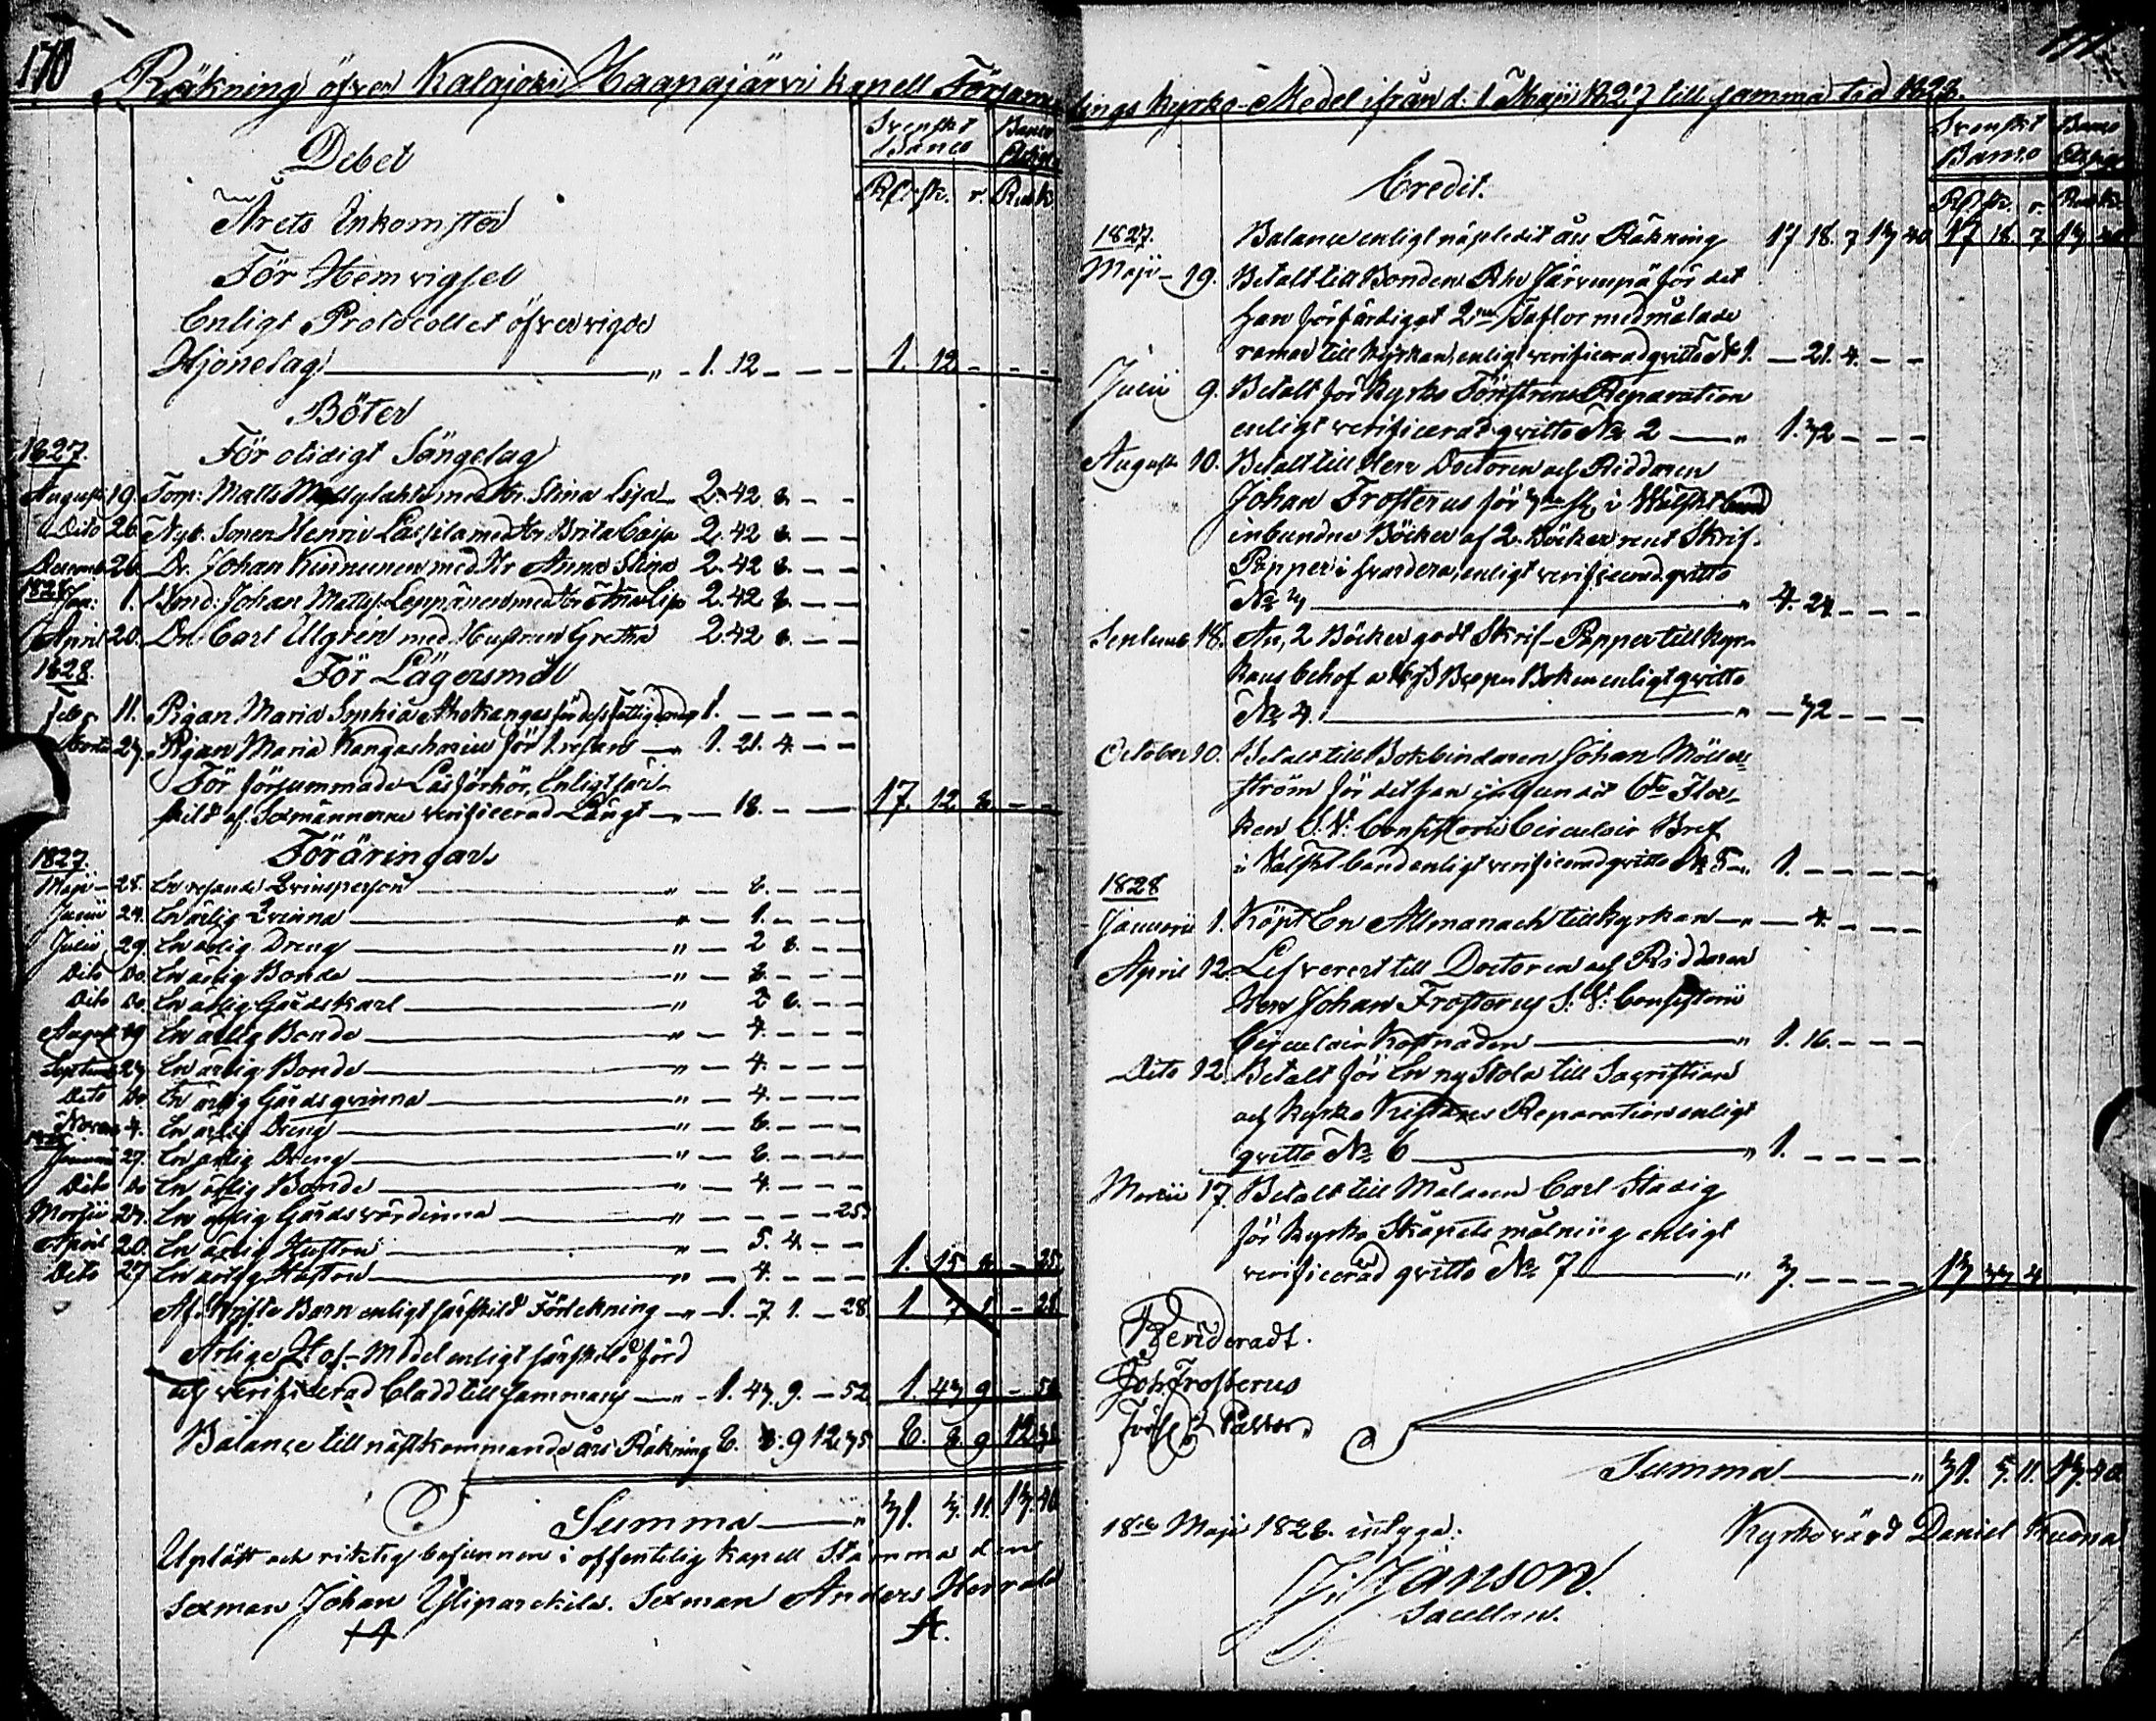 170
Räkning öfver Kalajoki Haapajärvi kapell Församlings Kyrko-Medel ifrån d: 1 Maji 1827 till samma tid 1828.
Debet
Svenskt Banco
Rdr sk. r.
Årets Inkomster
För Hemvigsel
Enligt Protocollet öfver vigde
Hjonelag " - 1. 12 - - - 1. 12 - - -
Böter
För otidigt Sängelag
1827.
August 19. Torp: Matts med Hr. Stina Lisa 2. 42 8 - -
Dito 26. Nyb. Sonen Henric Lassila med Hr Brita Caisa 2. 42 8 - -
Decemb 26. Dr. Johan Kinnunen med Hr Anna Stina 2. 42 8 - -
1828
Jan: 1. Bond: Johan Matts. Leppänen med Hr Ana Lisa 2. 42 8 - -
April 20. Dr. Carl Ulgrén med Hustrun Gretha 2. 42 8 - -
1828. För Lägersmål
Feb. 11. Pigan Maria Sophia Ahokangas för dess fattigdom 1. - - - -
27. Pigan Maria Kangas för 1 resan " 1. 21. 4 - -
För försummade Läsförhör, Enligt sär-
skild af Sexmännerne verificerad Längt " - 18. - - - 17. 12 8 - -
Föräringar
1827.
Maji 28. En resande Qvinsperson " - 8. - - -
Junii 24. En ärlig Qvinna " - 1. - - -
Julii 29. En ärlig Dreng " - 2 8. - -
Dito Do. En ärlig Bonde " - 8. - - -
Dito Do. En ärlig Gårdskarl " 2 8. - -
August 19 En ärlig Bonde " - 4. - - -
Septemb 23. En ärlig Bonde " - 4. - - -
Dito Do. En ärlig Gårdsqvinna " - 4. - - -
Novemb 4. En ärlig Dreng " - 8. - - -
1828
Januarii 27. En ärlig Dreng " - 8. - - -
Dito Do En ärlig Bonde " - 4. - - -
Martii 23. En ärlig Gårdsvärdinna " - - - - 25.
April 20. En ärlig Hustru " - 5. 4. - -
Dito 27 En ärlig Hustru " - 4. - - - 1. 15 8 - 25.
Af Kyrko Barn enligt särskild Förtekning " - 1. 7 1. - 28. 1 7 1 - 28.
Årlige Håf-Medel enligt särskild förd
och verificerad Cladd tillsammans " - 1. 43. 9. - 52 1. 43 9 - 52
Balance till nästkommande års Räkning 8. 8. 9 12. 35 8. 8. 9 12 35
Summa " 31. 3. 11. 13. 40
Upläst och riktig befunnen i offentelig Kapell Stämma den
Sexman Johan Yliparckila. Sexman Anders Herrala
171
Credit.
Svenskt Banco
Rdr sk. r.
1827. Balance enligt näsledit års Räkning 17 18. 7 13 40 17 18 7 13 40
Maji - 19. Betalt till Bonden Järvenpä för det
han förfärdigat 2ne Taflor med målade
ramar till Kyrkan, enligt verificerad qvitto No 1. - 21. 4. - -
Julii 9. Betalt för Kyrko Fönstrens Reparation
enligt verificerad qvitto No 2 " 1. 32 - - -
August 10. Betalt till Herr Doctoren och Riddaren
Johan Frosterus för 3ne st. i Wälskt band
inbundne Böcker af 2 Böcker rent Skrif-
Papper i hvardera, enligt verificerad qvitto
No 3 " 4. 24 - - -
Septemb 18. 2 Böcker godt Skrif-Papper till Kyr-
kans behof a 16 ß Boken enligt qvitto
No 4. " - 32 - - -
October 10. Betalt till Bokbindaren Johan Möller-
ström för det han inbundit 6te
ken S: V: Consistorii Circulair Bref
i Wälskt band enligt verificerad qvitto No 5 " 1. - - - -
1828
Januarii 1. Köpt En Allmanach till Kyrkan " - 4. - - -
April 12. Lefvererat till Doctoren och Riddaren
Herr Johan Frosterus S: V: Consistorii
Circulair Kostnaden " 1. 16. - - -
Dito 12. Betalt för En ny Stola till Sacristian
och Kyrko Kistans Reparation enligt
qvitto No 6 " 1. - - - -
Martii 17. Betalt till Målaren Carl Stadig
för Kyrko Skåpets målning enligt
verificerad qvitto No 7 " 3. - - - - 13 33 4
Revideradt.
Joh. Frosterus
Summa " 31. 3. 11. 13. 40.
18de Maji 1828. intyga: Kyrkovärd Daniel Kuona
J. Janson.
Sacellan.